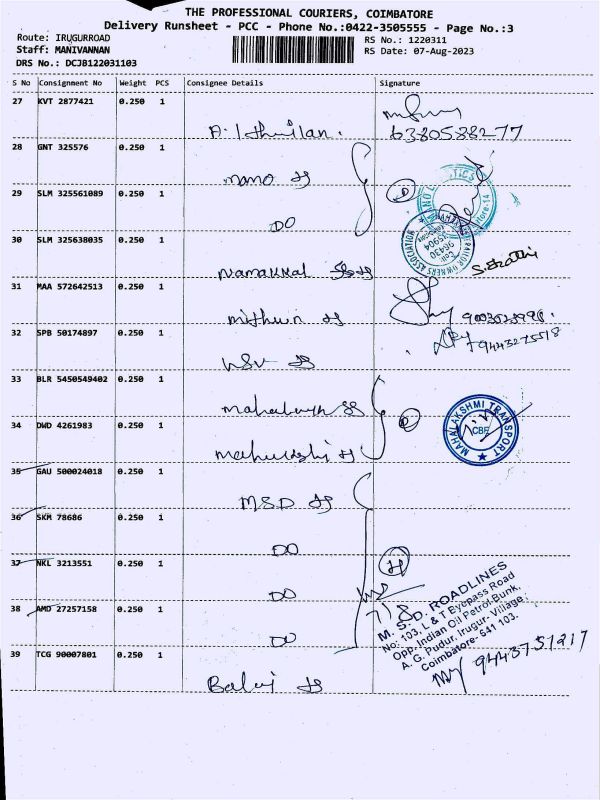 THE PROFESSIONAL COURIERS, COIMBATORE
Delivery Runsheet - PCC - Phone No.:0422-3505555 - Page No.:3
Route: IRUGURROAD
Staff: MANIVANNAN
DRS No.: DCJB122031103
RS No.: 1220311
RS Date: 07-Aug-2023
S No Consignment No Weight PCS Consignee Details Signature
27 KVT 2877421 0.250 1
6380588277
28 GNT 325576 0.250 1
mano
29 SLM 325561089 0.250 1
DO
30 SLM 325638035 0.250 1
Namakkal
31 MAA 572642513 0.250 1
mithun
32 SPB 50174897 0.250 1
9443275518
33 BLR 5450549402 0.250 1
34 DWD 4261983 0.250 1
MAHALAKSHMI TRANSPORT
CBE
35 GAU 500024018 0.250 1
MSD
36 SKM 78686 0.250 1
DO
37 NKL 3213551 0.250 1
DO
38 AMD 27257158 0.250 1
DO
M. S. D. ROADLINES
No: 103, L & T Byepass Road
Opp. Indian Oil Petrol Bunk,
A. G. Pudur, Irugur Village,
Coimbatore- 641 103.
9443751217
39 TCG 90007801 0.250 1
Balaji